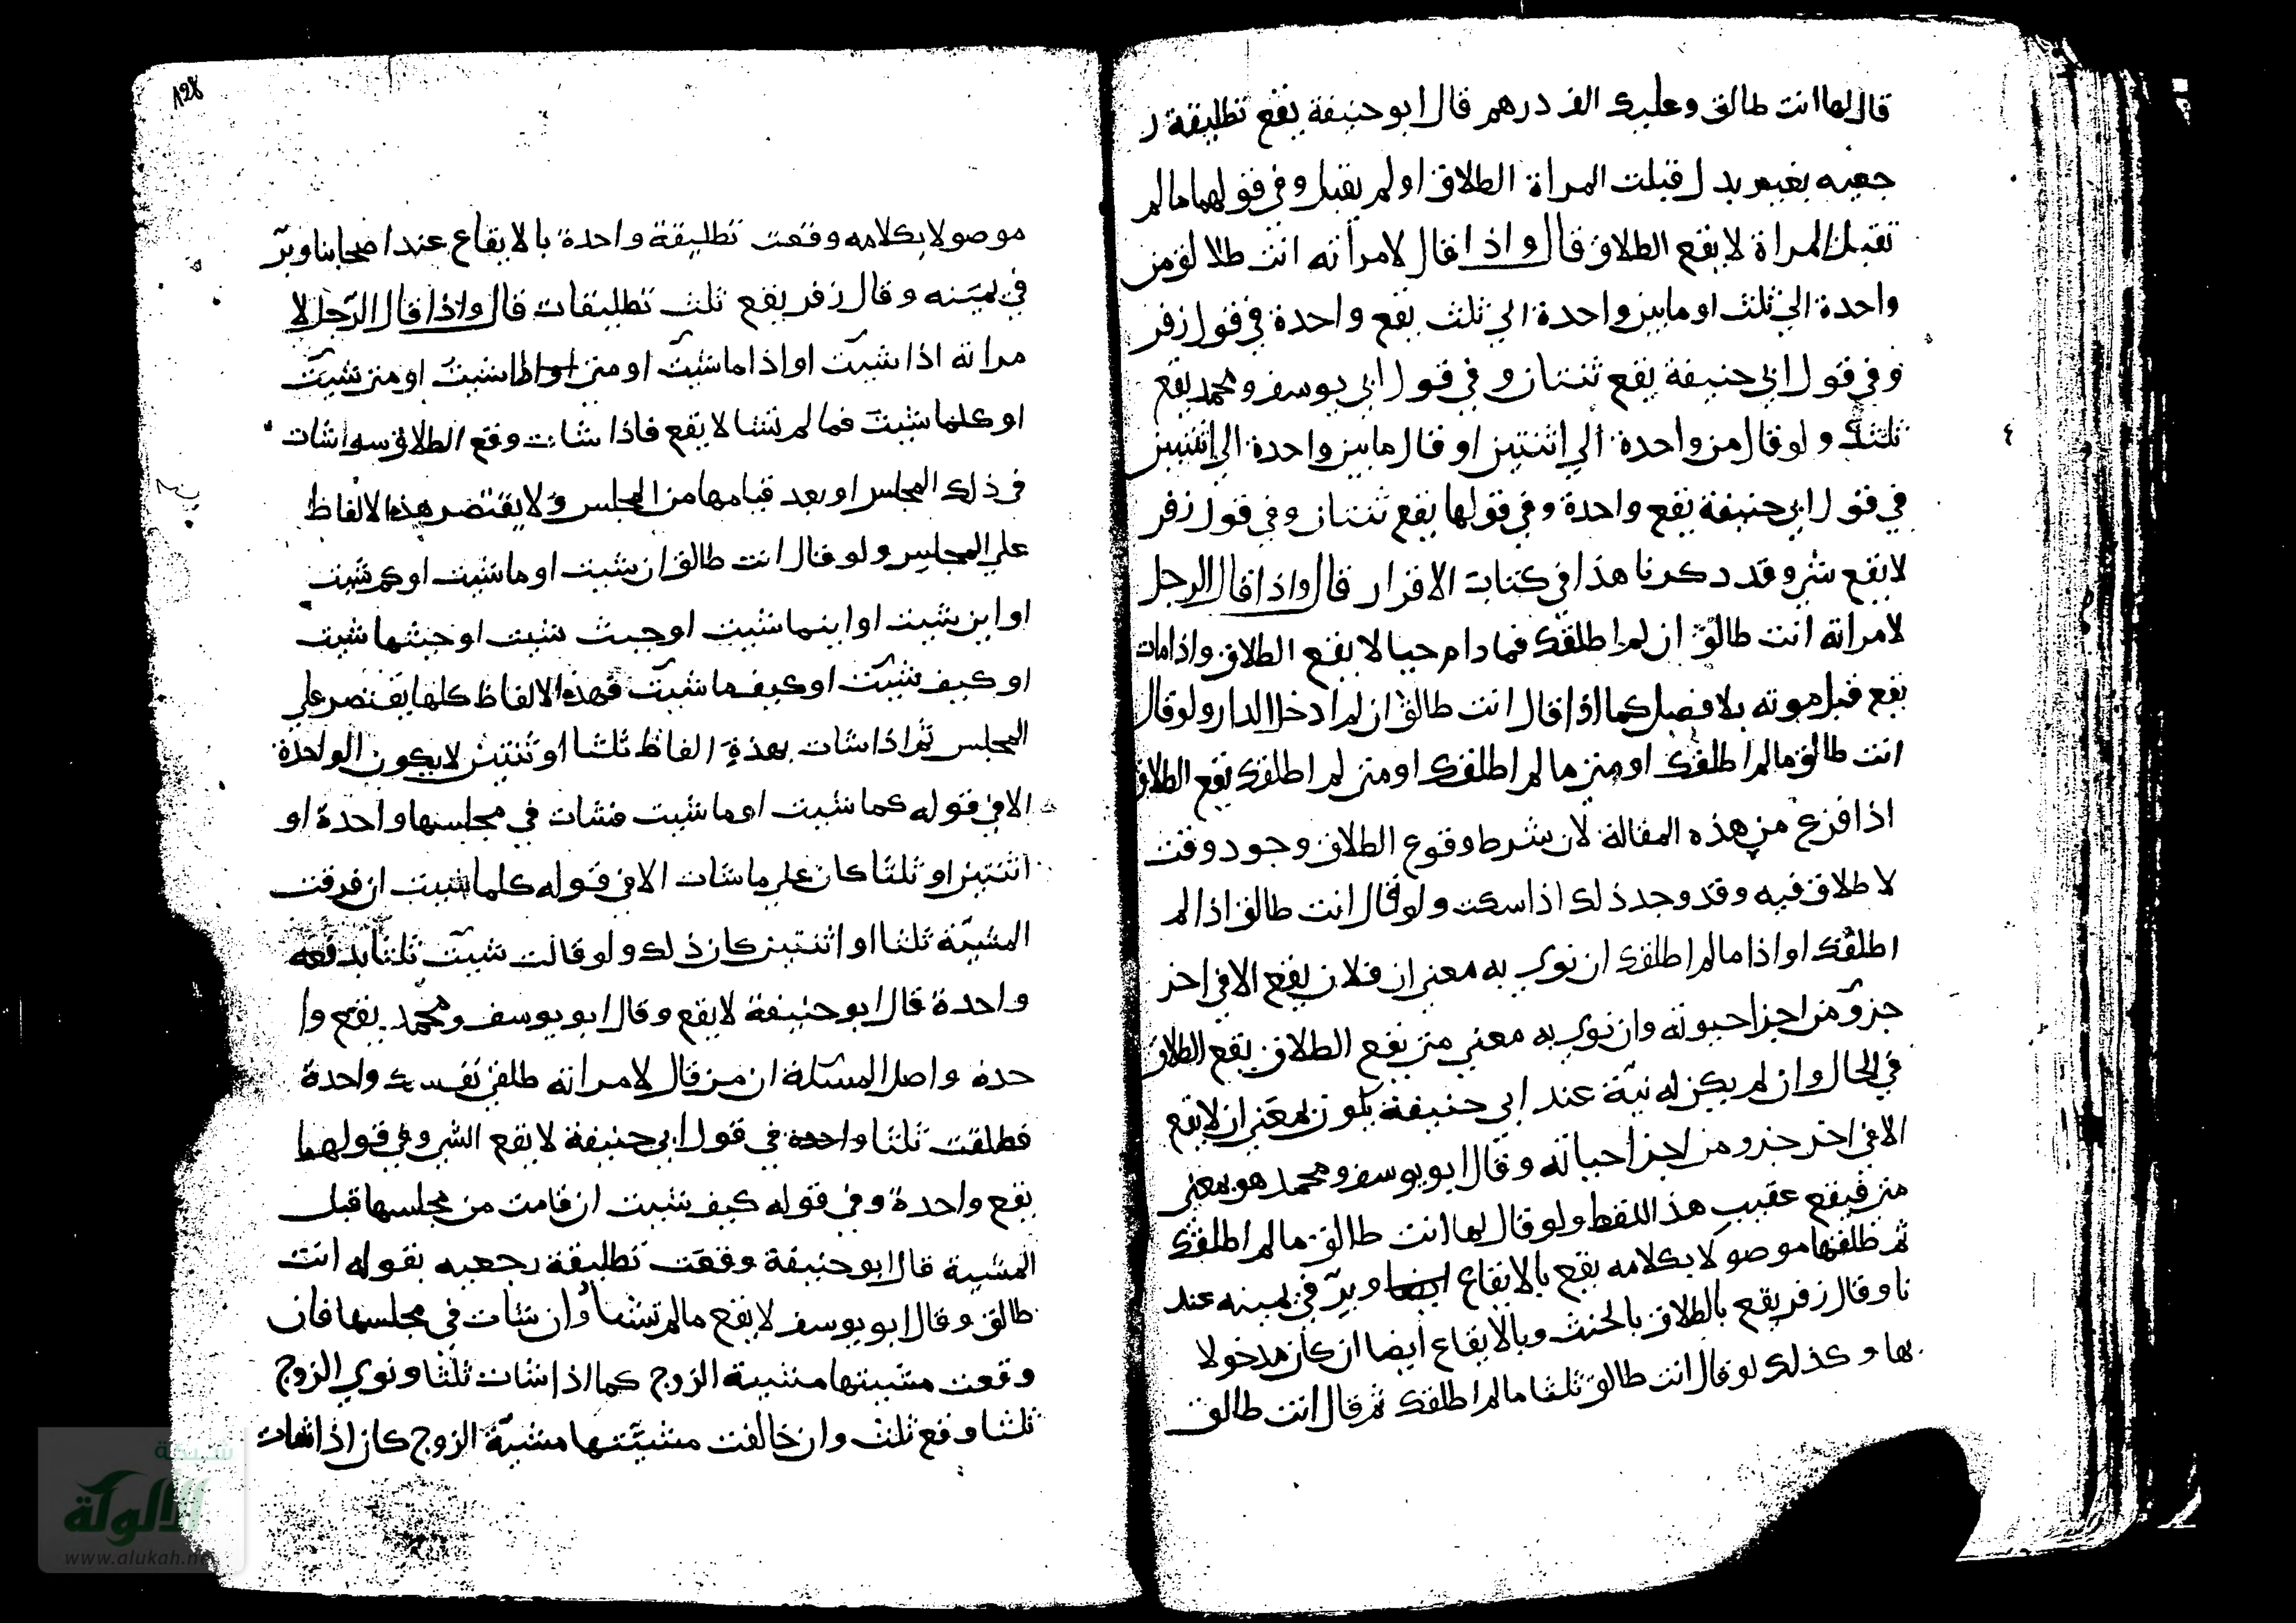 قال لها انت طالق وعليك الف درهم قال ابو حنيفة يقع تطليقة ر
جعيه بغير بدل قبلت المراة الطلاق او لم يقبل وفي قولهما ما لم
تقبل المراة لا يقع الطلاق قال واذا قال لامرأته انت طالق من
واحدة الي ثلث او ما بين واحدة الي ثلث يقع واحدة في قول زفر
وفي قول ابي حنيفة يقع ثنتان وفي قول ابي يوسف ومحمد يقع
ثلثك ولو قال من واحدة الي اثنتين او قال ما بين واحدة الي اثنتين
في قول ابي حنيفة يقع واحدة وفي قولها يقع ثنتان وفي قول زفر
لا يقع شي وقد دكرنا هذا في كتاب الاقرار قال واذا قال الرجل
لامراته انت طالق ان لم اطلقك فما دام حيا لا يقع الطلاق واذا مات
يقع قبل موته بلا فصل كما اذا قال انت طالق ان لم ادخل الدار ولو قال
انت طالق ما لم اطلقك او متي ما لم اطلقك او متي لم اطلقك يقع الطلاق
اذا فرغ من هذه المقالة لان شرط وقوع الطلاق وجود وقت
لا طلاق فيه وقد وجد ذلك اذا سكت ولو قال انت طالق اذا لم
اطلقك او اذا ما لم اطلقك ان نوي به معني ان فلان يقع الا في اخر
جزؤ من اجزا حيوته وان نوي به معني متي يقع الطلاق يقع الطلاق
في الحال وان لم يكن له نية عند ابي حنيفة يكون بمعني ان لا يقع
الا في اخر جزو من اجزا حياته وقال ابو يوسف ومحمد هو بمعني
متي فيقع عقيب هذا اللفظ ولو قال لها انت طالق ما لم اطلقك
ثم طلقها موصولا بكلامه يقع بالايقاع ايضا وبر في يمينه عند
نا وقال زفر يقع بالطلاق بالحنث وبالايقاع ايضا ان كان مدخولا
بها وكذلك لو قال انت طالق ثلثا ما لم اطلقك ثم قال انت طالق
128
موصولا بكلامه وقعت تطليقة واحدة بالايقاع عند اصحابنا وبر
في يمينه وقال زفر يقع ثلث تطليقات قال واذا قال الرجل لا
مراته اذا شيت او اذا ما شيت او متي او اذا شيت او متي شيت
او كلما شيت فما لم تشا لا يقع فاذا شات وقع الطلاق سوا شات
في ذلك المجلس او بعد قيامها من المجلس ولا يقتصر هذه الالفاظ
علي المجلس ولو قال انت طالق ان شيت او ما شيت او كم شيت
او اين شيت او اينما شيت او حيث شيت او حيثما شيت
او كيف شيت او كيف ما شيت فهذه الالفاظ كلها يقتصر علي
المجلس ثم اذا شات بهذه الفاظ ثلثا او ثنتين لا يكون الواحدة
الا في قوله كما شيت او ما شيت فشات في مجلسها واحدة او
اثنتين او ثلثا كان علي ما شات الا في قوله كلما شيت ان فرقت
المشية ثلثا او اثنتين كان ذلك ولو قالت شيت ثلثا بدفعه
واحدة قال ابو حنيفة لا يقع وقال ابو يوسف ومحمد يقع وا
حدة واصل المسئلة ان من قال لامراته طلقي نفسك واحدة
فطلقت ثلثا واحدة في قول ابي حنيفة لا يقع الشي وفي قولهما
يقع واحدة وفي قوله كيف شيت ان قامت من مجلسها قبل
المشية قال ابو حنيفة وقعت تطليقة رجعيه بقوله انت
طالق وقال ابو يوسف لا يقع ما لم تشا وان شات في مجلسها فان
وقعت مشيتها مشية الزوج كما اذا شات ثلثا ونوي الزوج
ثلثا وقع ثلث وان خالفت مشيتها مشية الزوج كان اذا شات
شبكة
الألوكة
www.alukah.net